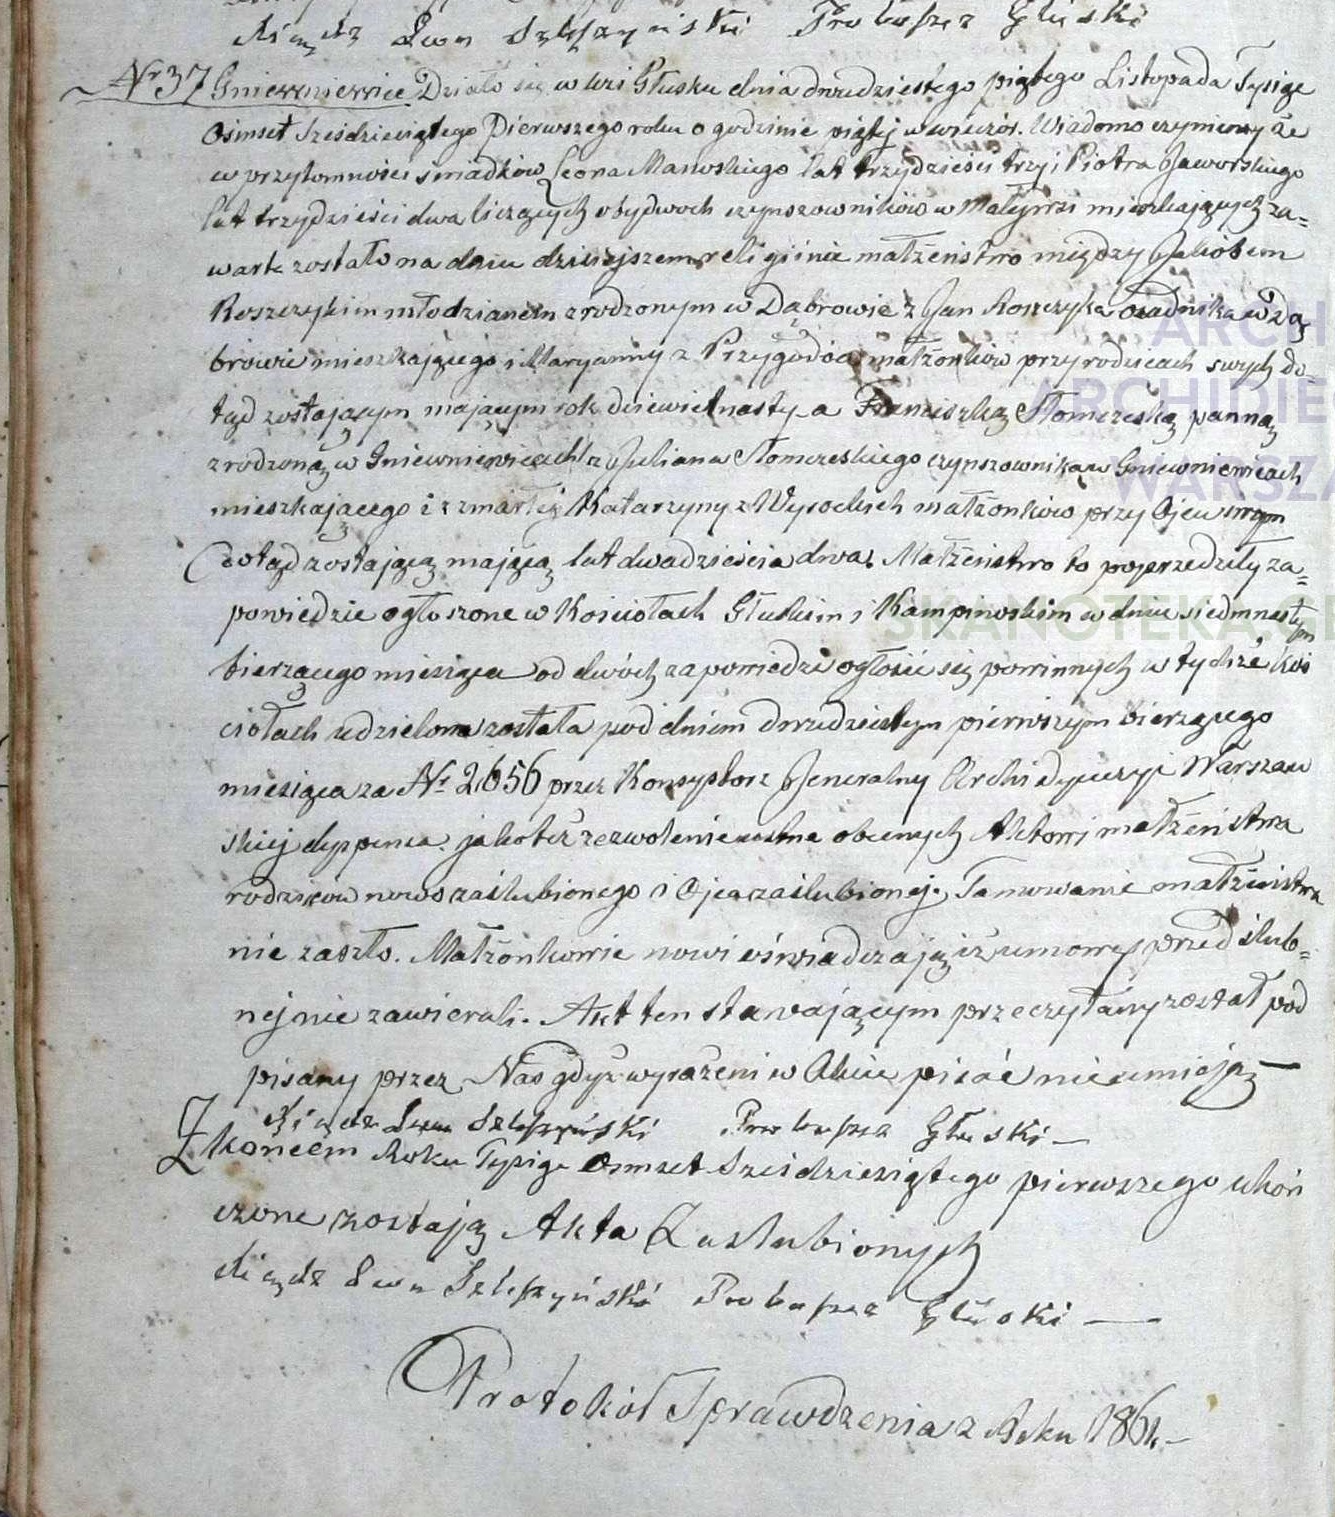 Ksiądz Ewa Szleszyński Proboszcz Głuski
Nr 37 Gniewniewice Działo się w wsi Głusku dnia dwudziestego piątego Listopada Tysiąc
Osimset Sześdziesiątego Pierwszego roku o godzinie piątej w wieczór. Wiadomo czyniemy że
w przytomności świadków Leona Manoskiego lat trzydzieści trzy i Piotra Jaworskiego
lat trzydzieści dwa liczących obydwoch czynszowników w Małejwsi mieszkających za-
warte zostało na dniu dzisiejszem religijnie małżeństwo między Jakóbem
Roszczykiem młodzianem zrodzonym w Dąbrowie z Jan Roszczyka osadnika w Dą
browie mieszkającego i Maryanny z Przygodów małżonków przy rodzicach swych do-
tąd zostającym mającym rok dziewietnasty a Franciszką Słomczeską panną
zrodzoną w Gniewniewicach z Juliana Słomczeskiego czynszownika w Gniewniewicach
mieszkającego i zmarłej Katarzyny z Wysockich małżonków przy Ojcu swym
dotąd zostającą mającą lat dwadzieścia dwa. Małżeństwo to poprzedziły za-
powiedzie ogłoszone w Kościołach Głuskim i Kampinoskim w dniu siedmnastym
bierzącego miesiąca od dwóch zapowiedzi ogłosić się powinnych w tychże Koś
ciołach udzielona została pod dniem dwudziestym pierwszym bierzącego
miesiąca za Nr 2656 przez Konsystorz Jeneralny Archidyecezyi Warszaw
skiej dyspensa jakoteż zezwolenie ustne obecnych Aktowi małżeństwa
rodziców nowo zaślubionego i Ojca zaślubionej. Tamowanie małżeństwa
nie zaszło. Małżonkowie nowi oświadczają iż umowy przed ślub-
nej nie zawierali. Akt ten stawającym przeczytany został pod
pisany przez Nas gdyż wyrażeni w Akcie pisać nieumieją
Ksiądz Szleszyński Proboszcz Głuski
Z końcem Roku Tysiąc Osmset Sześdziesiątego pierwszego ukoń
czone zostają Akta Zaślubionych
Ksiądz Szleszyński Proboszcz Głuski
Protokół Sprawdzenia z Roku 1861.
ARCH
ARCHIDIE
WARSZA
SKANOTEKA.GE